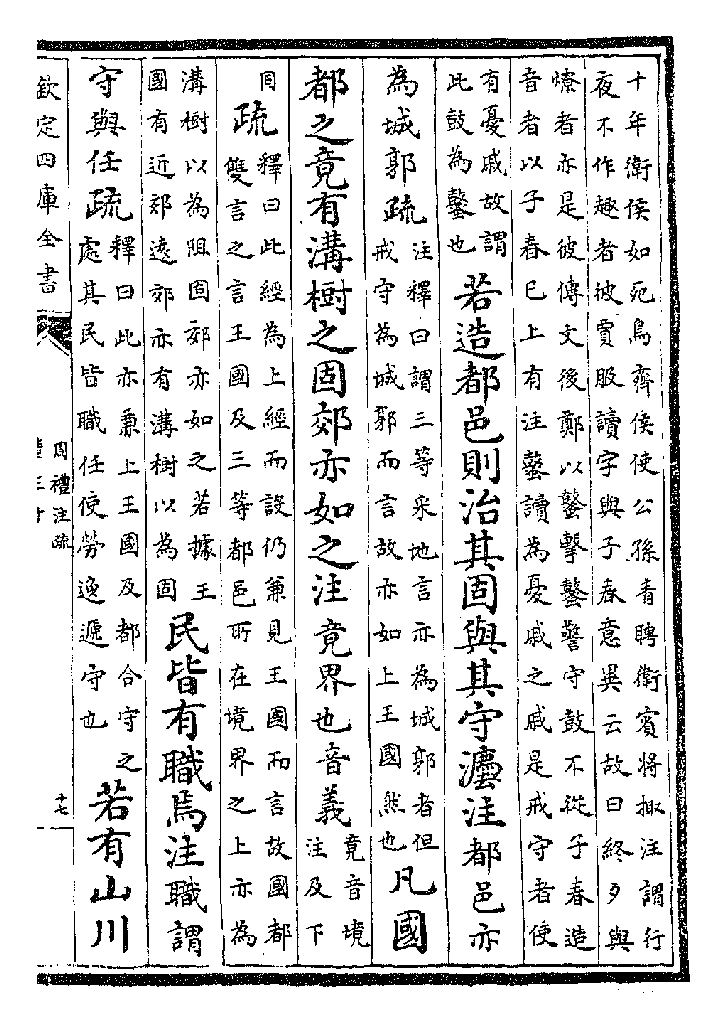 十年衛侯如死鳥齊侯使公孫青聘衛賓將掫注謂行
夜不作趣者彼賈服讀字與子春意異云故曰終夕與
燎者亦是彼傳文後鄭以鼜擊鼜警守鼓不從子春造
音者以子春巳上有注鼜讀為憂戚之戚是戒守者使
有憂戚故謂
此鼓為鼜也
若造都邑則治其固與其守灋注都邑亦
為城郭疏
注釋曰謂三等采地言亦為城郭者但
戒守為城郭而言故亦如上王國然也
凡國
都之竟有溝樹之固郊亦如之注竟界也音義
竟音境
注及下
同
疏
釋曰此經為上經而設仍兼見王國而言故國都
雙言之言王國及三等都邑所在境界之上亦為
溝樹以為阻固郊亦如之若據王
國有近郊遠郊亦有溝樹以為固
民皆有職焉注職謂
守與任疏
釋曰此亦兼上王國及都合守之
處其民皆職任使勞逸遞守也
若有山川
欽定四庫全書
周禮注疏
十七